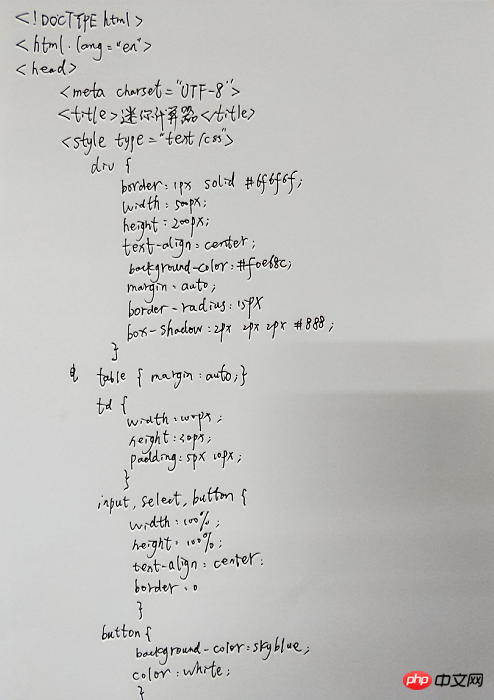 <!DOCTYPE html>
<html.lang="en">
<head>
<meta charset="UTF-8">
<title>迷你计算器</title>
<style type="text/css">
div {
border: 1px solid #6f6f6f;
width: 500px;
height: 200px;
text-align: center;
background-color: #f0e68c;
margin: auto;
border-radius: 15px
box-shadow: 2px 2px 2px #888;
}
table { margin: auto; }
td {
width: 100px;
height: 30px;
padding: 5px 10px;
}
input, select, button {
width: 100%;
height: 100%;
text-align: center;
border: 0
}
button {
background-color: skyblue;
color: white;
}
php中文网